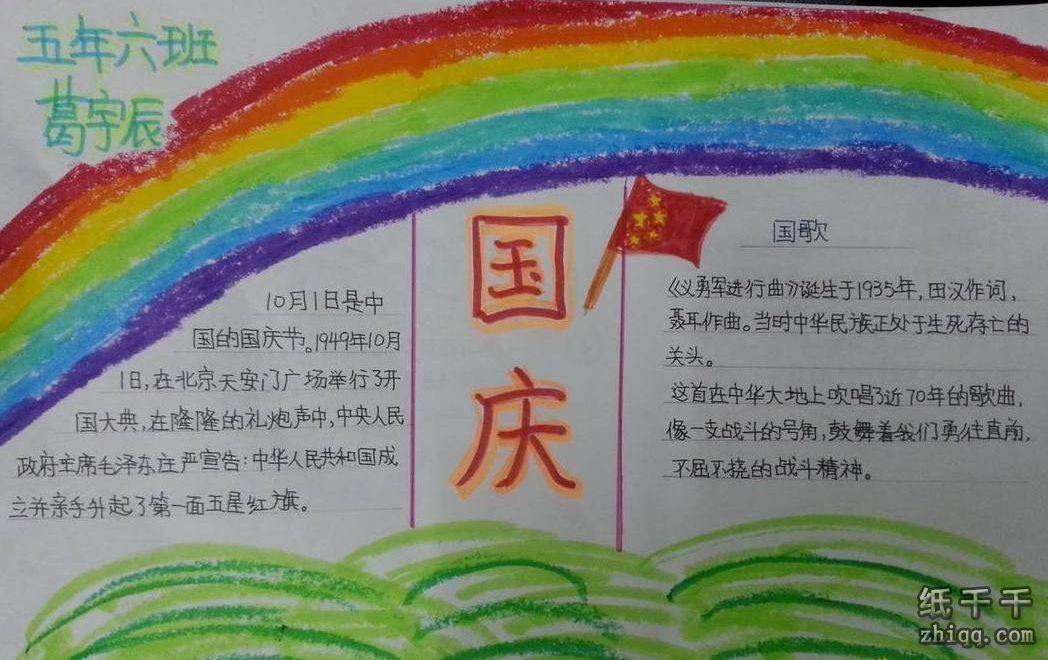 五年六班
葛宇辰
国庆
10月1日是中
国的国庆节。1949年10月
1日,在北京天安门广场举行了开
国大典,在隆隆的礼炮声中,中央人民
政府主席毛泽东庄严宣告:中华人民共和国成
立并亲手升起了第一面五星红旗。
国歌
《义勇军进行曲》诞生于1935年,田汉作词,
聂耳作曲。当时中华民族正处于生死存亡的
关头。
这首在中华大地上吹唱了近70年的歌曲,
像一支战斗的号角,鼓舞着我们勇往直前,
不屈不挠的战斗精神。
纸千千
zhiqq.com